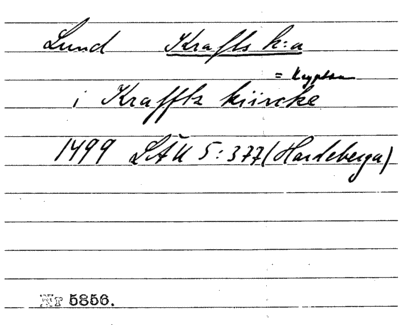 Lund Krafts k:a
= kryptan
i Krafftz kiircke
1499 LÄU 5:377 (Hardeberga)
Nr 5856.